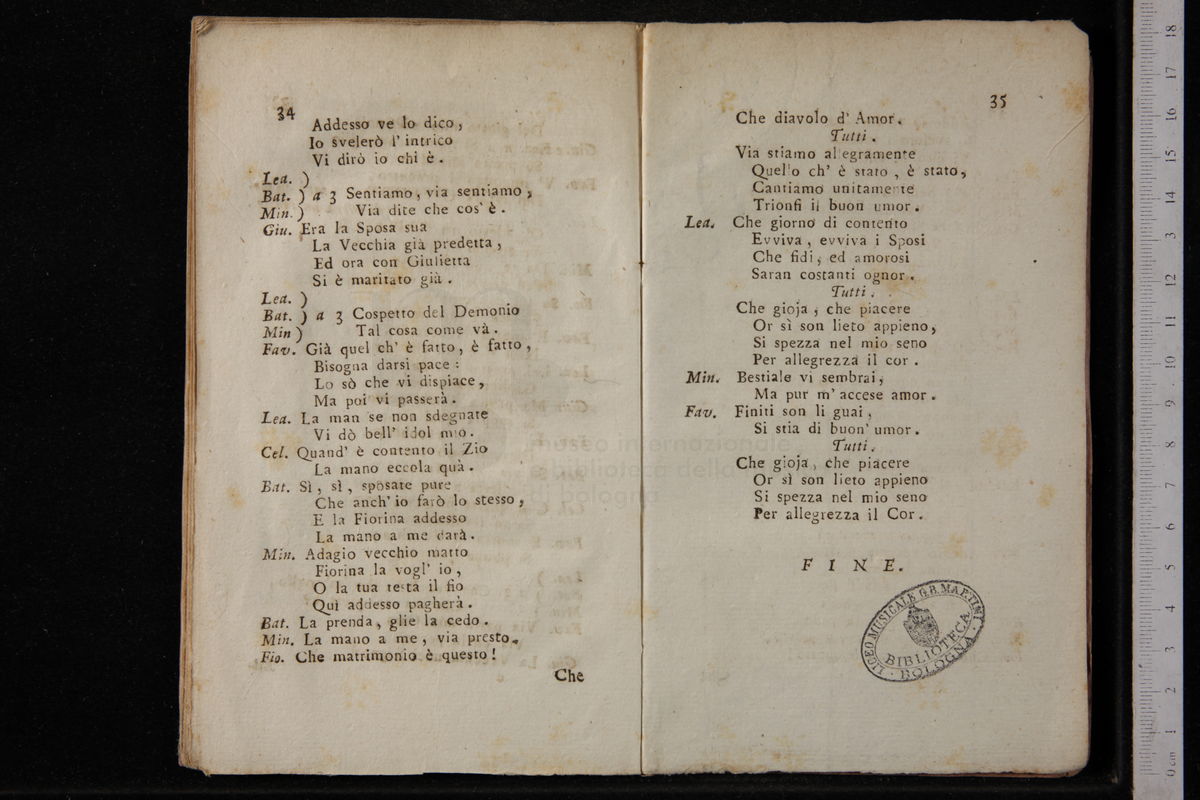 34
Addesso ve lo dico,
Io svelerò l' intrico
Vi dirò io chi è.
Lea. )
Bat. ) a 3 Sentiamo, via sentiamo,
Min. ) Via dite che cos' è.
Giu. Era la Sposa sua
La Vecchia già predetta,
Ed ora con Giulietta
Si è maritato già.
Lea. )
Bat. ) a 3 Cospetto del Demonio
Min ) Tal cosa come và.
Fav. Già quel ch' è fatto, è fatto,
Bisogna darsi pace:
Lo sò che vi dispiace,
Ma poi vi passerà.
Lea. La man se non sdegnate
Vi dò bell' idol mio.
Cel. Quand' è contento il Zio
La mano eccola quà.
Bat. Sì, sì, sposate pure
Che anch' io farò lo stesso,
E la Fiorina addesso
La mano a me darà.
Min. Adagio vecchio matto
Fiorina la vogl' io,
O la tua testa il fio
Quì addesso pagherà.
Bat. La prenda, glie la cedo.
Min. La mano a me, via presto.
Fio. Che matrimonio è questo!
Che
35
Che diavolo d' Amor.
Tutti.
Via stiamo allegramente
Quello ch' è stato, è stato,
Cantiamo unitamente
Trionfi il buon umor.
Lea. Che giorno di contento
Evviva, evviva i Sposi
Che fidi, ed amorosi
Saran costanti ognor.
Tutti.
Che gioja, che piacere
Or sì son lieto appieno,
Si spezza nel mio seno
Per allegrezza il cor.
Min. Bestiale vi sembrai,
Ma pur m' accese amor.
Fav. Finiti son li guai,
Si stia di buon' umor.
Tutti.
Che gioja, che piacere
Or sì son lieto appieno
Si spezza nel mio seno
Per allegrezza il Cor.
FINE.
LICEO MUSICALE G.B. MARTINI
BIBLIOTECA
BOLOGNA
museo internazionale
e biblioteca della
di bologna
0 cm 1 2 3 4 5 6 7 8 9 10 11 12 13 14 15 16 17 18